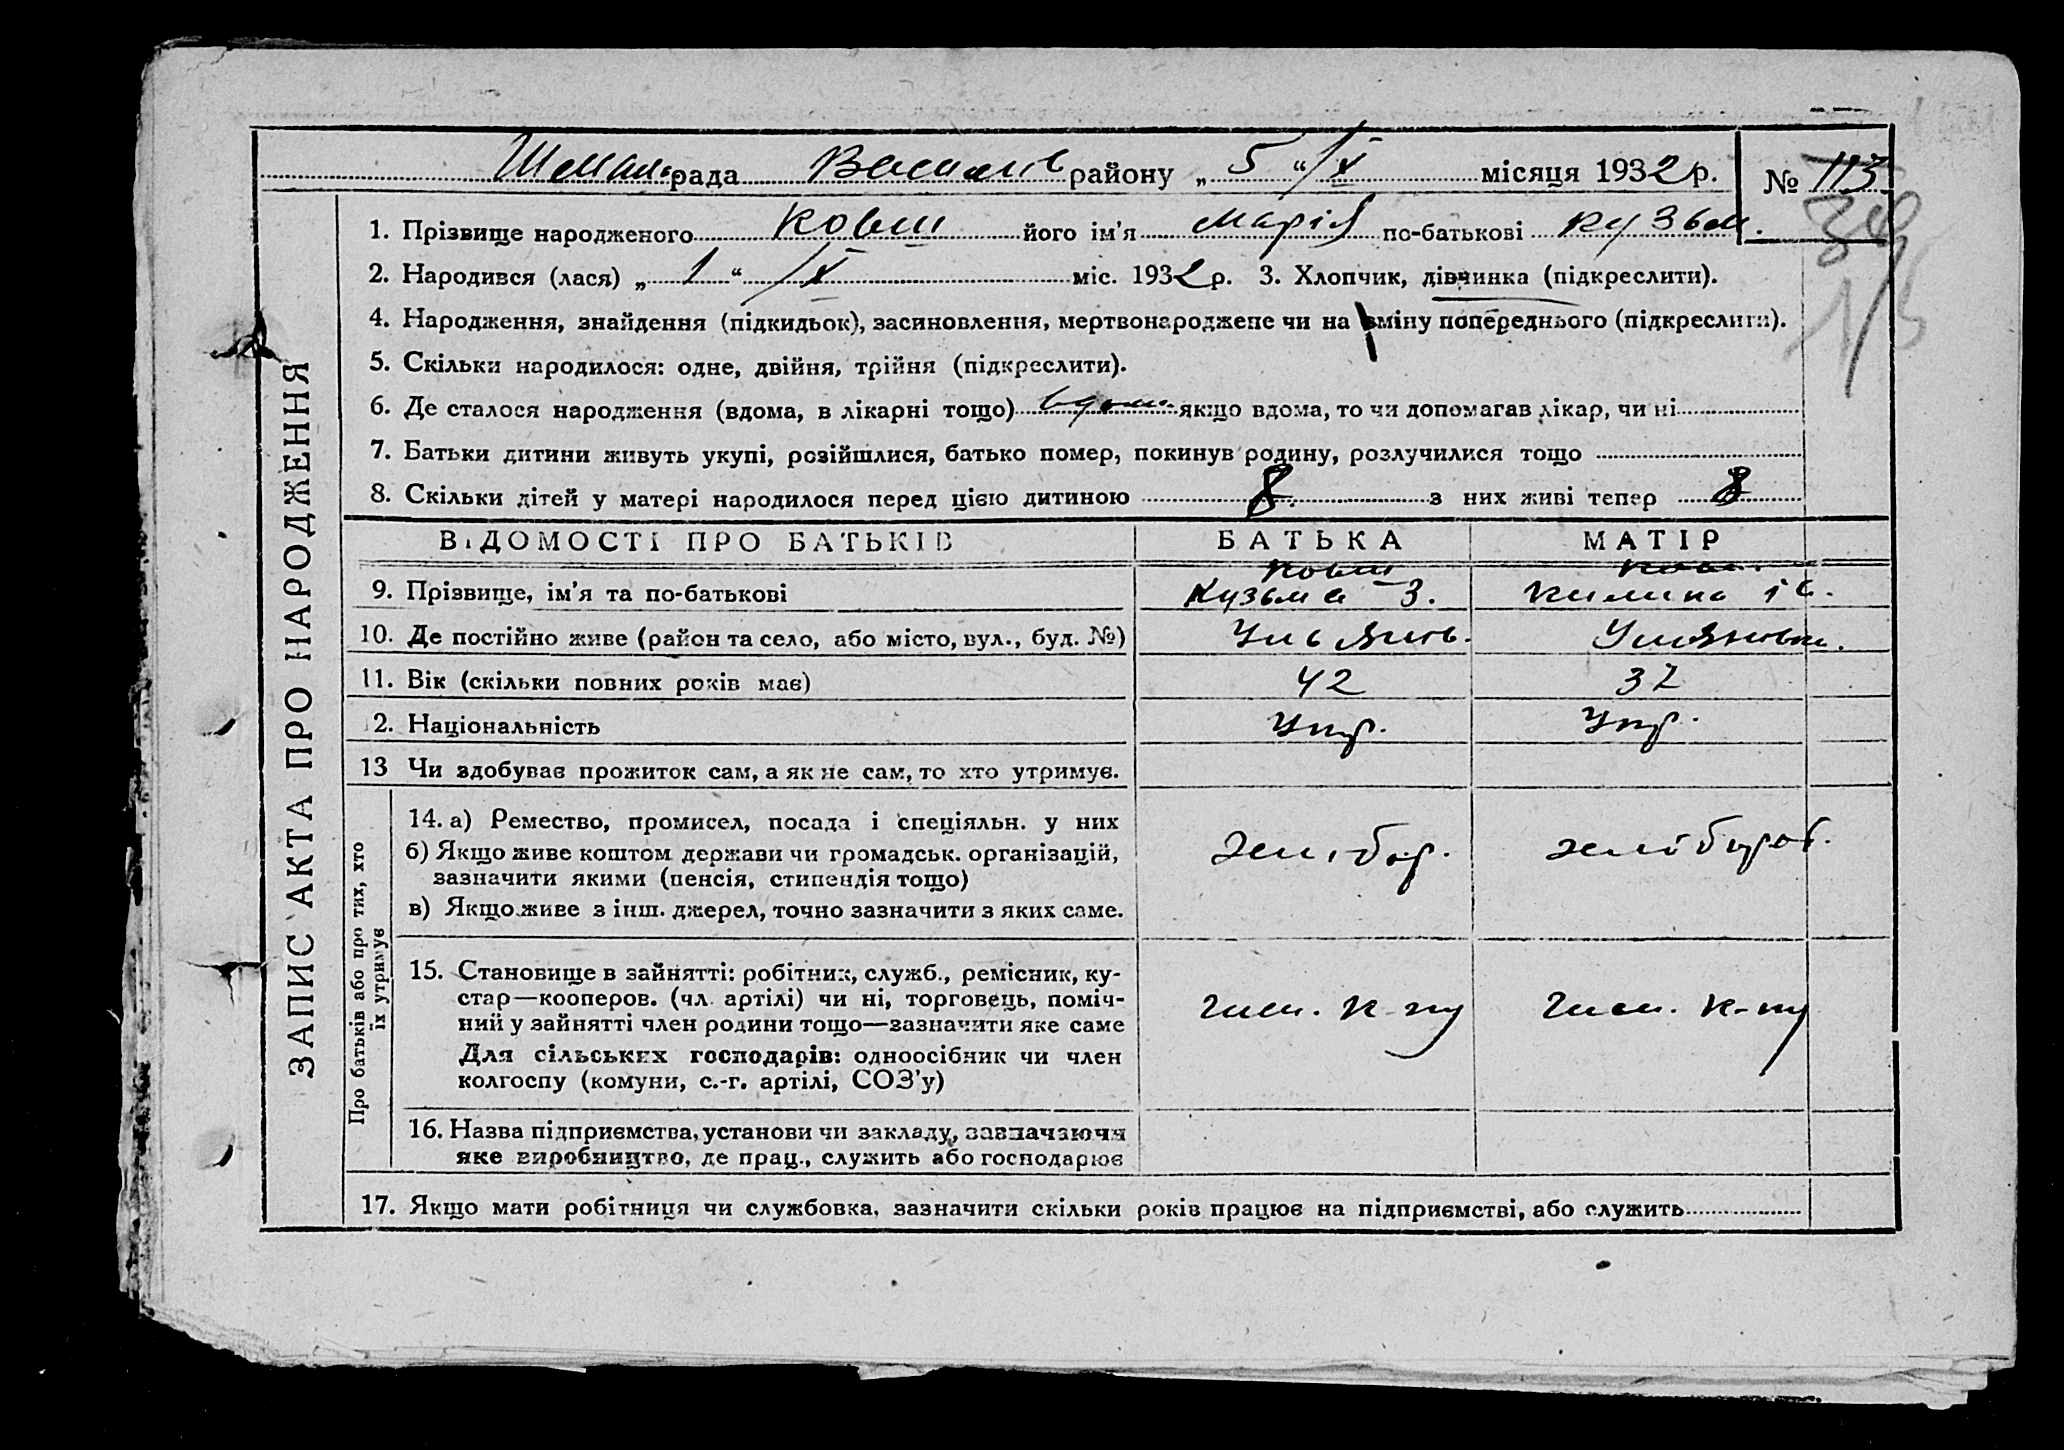 рада Василів району „ 5 “ ІХ місяця 1932 р. № 113
1. Прізвище народженого Ковш його ім'я Марія по-батькові Кузьм.
2. Народився (лася) „ 1 “ ІХ міс. 1932 р. 3. Хлопчик, дівчинка (підкреслити).
4. Народження, знайдення (підкидьок), засиновлення, мертвонароджене чи на зміну попереднього (підкреслити).
5. Скільки народилося: одне, двійня, трійня (підкреслити).
6. Де сталося народження (вдома, в лікарні тощо) вдома якщо вдома, то чи допомагав лікар, чи ні
7. Батьки дитини живуть укупі, розійшлися, батько помер, покинув родину, розлучилися тощо
8. Скільки дітей у матері народилося перед цією дитиною 8 з них живі тепер 8
ЗАПИС АКТА ПРО НАРОДЖЕННЯ
ВІДОМОСТІ ПРО БАТЬКІВ БАТЬКА МАТІР
9. Прізвище, ім'я та по-батькові Ковш Кузьма З. Ковш. Килина
10. Де постійно живе (район та село, або місто, вул., буд. №)
11. Вік (скільки повних років має) 42 37
12. Національність Укр. Укр.
13 Чи здобуває прожиток сам, а як не сам, то хто утримує.
Про батьків або про тих, хто
їх утримує
14. а) Ремество, промисел, посада і спеціяльн. у них
б) Якщо живе коштом держави чи громадськ. організацій,
зазначити якими (пенсія, стипендія тощо)
в) Якщо живе з інш. джерел, точно зазначити з яких саме.
15. Становище в зайнятті: робітник, служб., ремісник, ку-
стар—кооперов. (чл. артілі) чи ні, торговець, поміч-
ний у зайнятті член родини тощо—зазначити яке саме
Для сільських господарів: одноосібник чи член
колгоспу (комуни, с.-г. артілі, СОЗ'у)
член. к-пу член. к-пу
16. Назва підприємства, установи чи закладу, зазначаючи
яке виробництво, де прац., служить або господарює
17. Якщо мати робітниця чи службовка, зазначити скільки років працює на підприємстві, або служить